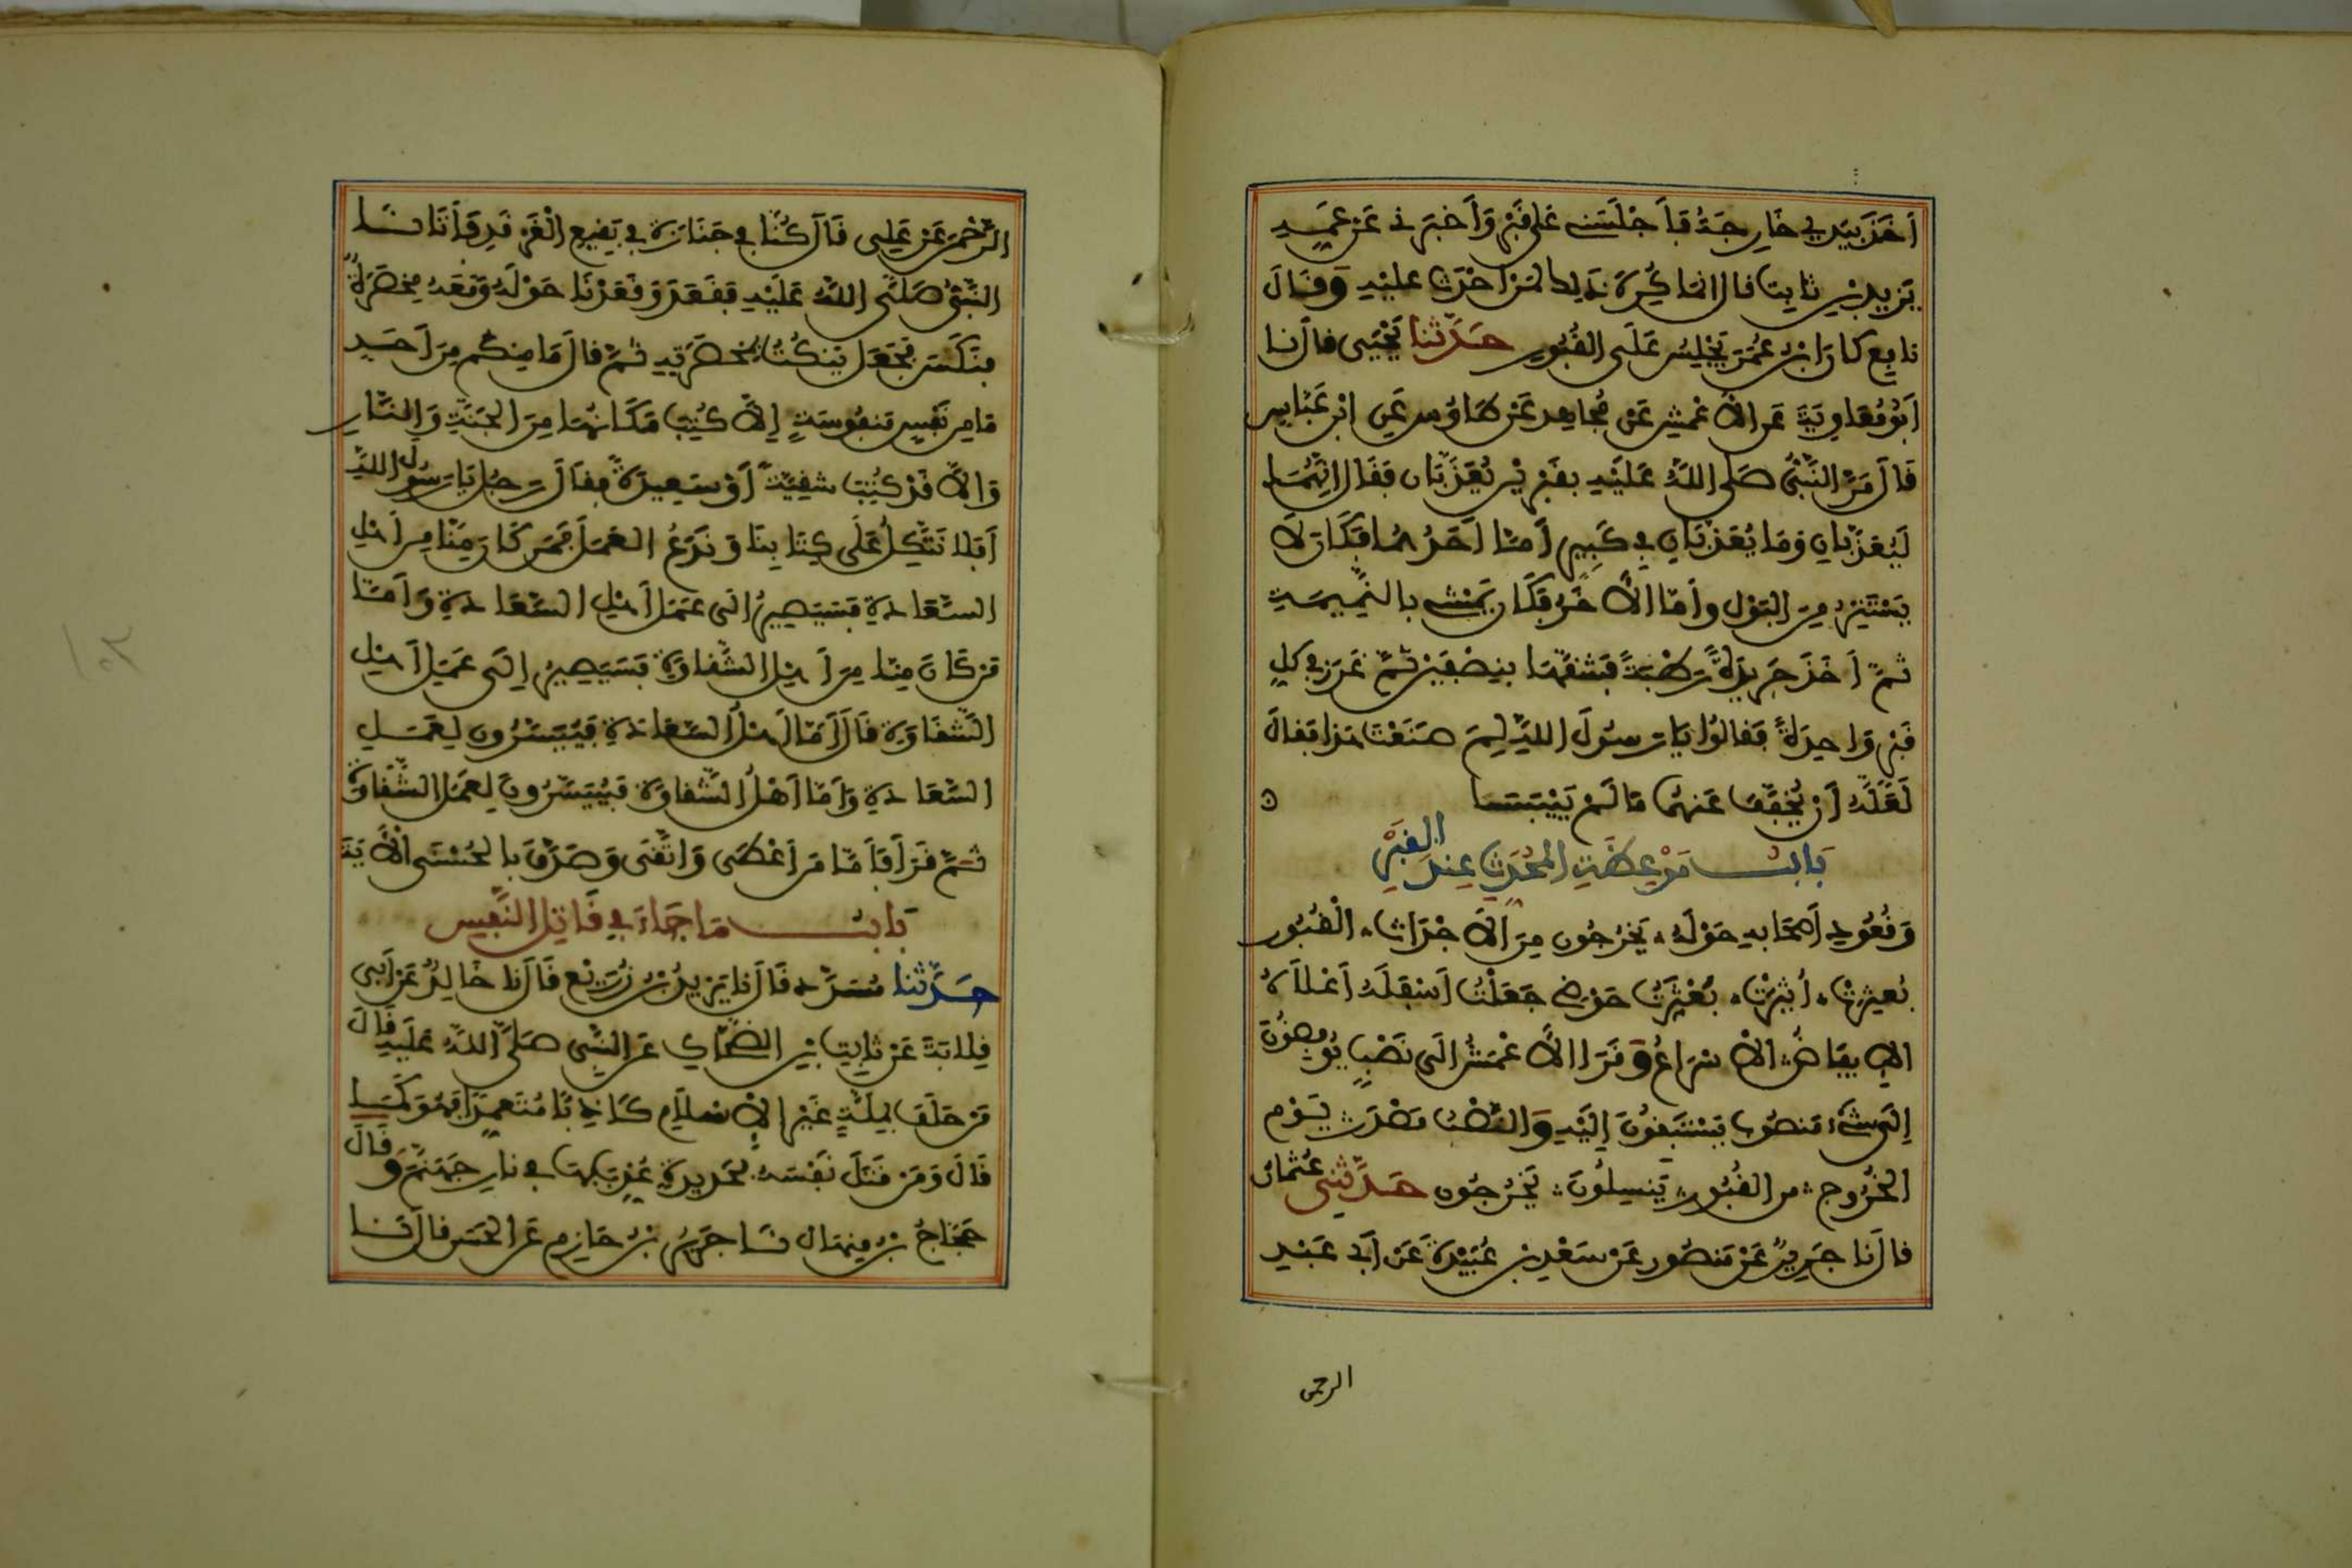 أَخَذَ بِيَدِي خَارِجَةُ فَأَجْلَسَنِي عَلَى قَبْرٍ وَأَخْبَرَنِي عَنْ عَمِّهِ
يَزِيدَ بْنِ ثَابِتٍ قال انما كُرِهَ ذَلِكَ لِمَنْ أَحْدَثَ عليْهِ وَقَالَ
نافِع كَانَ ابْنُ عُمَرَ يَجْلِسُ عَلَى القُبُورِ حَدَّثَنَا يَحْيَى قال نا
أَبُو مُعَاوِيَةَ عَنِ الأَعْمَشِ عَنْ مُجَاهِدٍ عَنْ طَاوُسٍ عَنِ ابْنِ عَبَّاسٍ
قَالَ مَرَّ النَّبِيُّ صَلَى اللَّهُ عَلَيْهِ بِقَبْرَيْنِ يُعَذَّبَانِ فَقَالَ إِنَّهُمَا
لَيُعَذَّبَانِ وَمَا يُعَذَّبَانِ فِي كَبِيرٍ أَمَّا أَحَدُهُمَا فَكَانَ لَا
يَسْتَتِرُ مِنَ البَوْلِ وأَمَّا الأَخَرُ فَكَانَ يَمْشِي بِالنَّمِيمَةِ
ثمَّ أَخَذَ جَرِيدَةً رَطْبَةً فَشَقَّهَا بِنِصْفَيْنِ ثُمَّ غَرَزَ فِي كُلِّ
قَبْرٍ وَاحِدَةً فَقَالُوا يَا رَسُولَ اللَّهِ لِمَ صَنَعْتَ هَذَا فَقَالَ
لَعَلَّهُ أَنْ يُخَفَّفَ عَنْهُمَا مَا لَمْ يَيْبَسَا
بَابُ مَوْعِظَةِ الْمُحَدِّثِ عِنْدَ القَبْرِ
وَقُعُودِ أَصْحَابِهِ حَوْلَهُ يَخْرُجُونَ مِنَ الأَجْدَاثِ الْقُبُورِ
بُعْثِرَتْ أُثِيرَتْ بَعْثَرْتُ حَوْضِي جَعَلْتُ أَسْفَلَهُ أَعْلَاهُ
الإِيفَاضُ الإِسْرَاعُ وَقَرَأَ الأَعْمَشُ إِلَى نَصْبٍ يُوفِضُونَ
إِلَى شَيْءٍ مَنْصُوبٍ يَسْتَبِقُونَ إِلَيْهِ وَالنُّصْبُ مَصْدَرٌ يَوْم
الخُرُوجِ من القُبُورِ يَنْسِلُونَ يَخْرُجُونَ حَدَّثَنِي عُثْمَانُ
قال نَا جَرِيرٌ عَنْ مَنْصُورٍ عَنْ سَعْدِ بْنِ عُبَيْدَةَ عَنْ أَبِي عَبْدِ
الرحمن
الرَّحْمَنِ عَنْ عَلِيٍّ قَالَ كُنَّا فِي جَنَازَةٍ فِي بَقِيعِ الْغَرْقَدِ فَأَتَانَا
النَّبِيُّ صَلَّى اللَّهُ عَلَيْهِ فَقَعَدَ وَقَعَدْنَا حَوْلَهُ وَمَعَهُ مِخْصَرَةٌ
فَنَكَّسَ فَجَعَلَ يَنْكُتُ بِمِخْصَرَتِهِ ثُمَّ قالَ مَا مِنْكُمْ مِنْ أَحَدٍ
مَا مِنْ نَفْسٍ مَنْفُوسَةٍ إِلَّا كُتِبَ مَكَانُهَا مِنَ الْجَنَّةِ وَالنَّارِ
وَإِلَّا قَدْ كُتِبَتْ شَقِيَّةً أَوْ سَعِيدَةً فَقَالَ رَجُلٌ يَا رَسُولَ اللَّهِ
أَفَلَا نَتَّكِلُ عَلَى كِتَابِنَا وَنَدَعُ العَمَلَ فَمَنْ كَانَ مِنَّا مِنْ أَهْلِ
السَّعَادَةِ فَسَيَصِيرُ إِلَى عَمَلِ أَهْلِ السَّعَادَةِ وَأَمَّا
مَنْ كَانَ مِنَّا مِنْ أَهْلِ الشَّقَاوَةِ فَسَيَصِيرُ إِلَى عَمَلِ أَهْلِ
الشَّقَاوَةِ قَالَ أَمَّا أَهْلُ السَّعَادَةِ فَيُيَسَّرُونَ لِعَمَلِ
السَّعَادَةِ وَأَمَّا أَهْلُ الشَّقَاوَةِ فَيُيَسَّرُونَ لِعَمَلِ الشَّقَاوَةِ
ثُمَّ قَرَأَ فَأَمَّا مَنْ أَعْطَى وَاتَّقَى وَصَدَّقَ بِالْحُسْنَى الآيَةَ
بَابُ مَا جَاءَ فِي قَاتِلِ النَّفْسِ
حَدَّثَنَا مُسَدَّد قَالَ نا يَزِيدُ بْنُ زُرَيْعٍ قَالَ نا خَالِدٌ عَنْ أَبِي
قِلَابَةَ عَنْ ثَابِتِ بْنِ الضَّحَّاكِ عَنِ النَّبِيِّ صَلَّى اللَّهُ عَلَيْهِ قَالَ
مَنْ حَلَفَ بِمِلَّةٍ غَيْرِ الإِسْلَامِ كَاذِبًا مُتَعَمِّدًا فَهُوَ كَمَا
قَالَ وَمَنْ قَتَلَ نَفْسَهُ بِحَدِيدَةٍ عُذِّبَ بِهَا فِي نَارِ جَهَنَّمَ وَقَالَ
حَجَّاجُ بْنُ مِنْهَالٍ نَا جَرِيرُ بْنُ حَازِمٍ عَنِ الحَسَنِ قال نَا